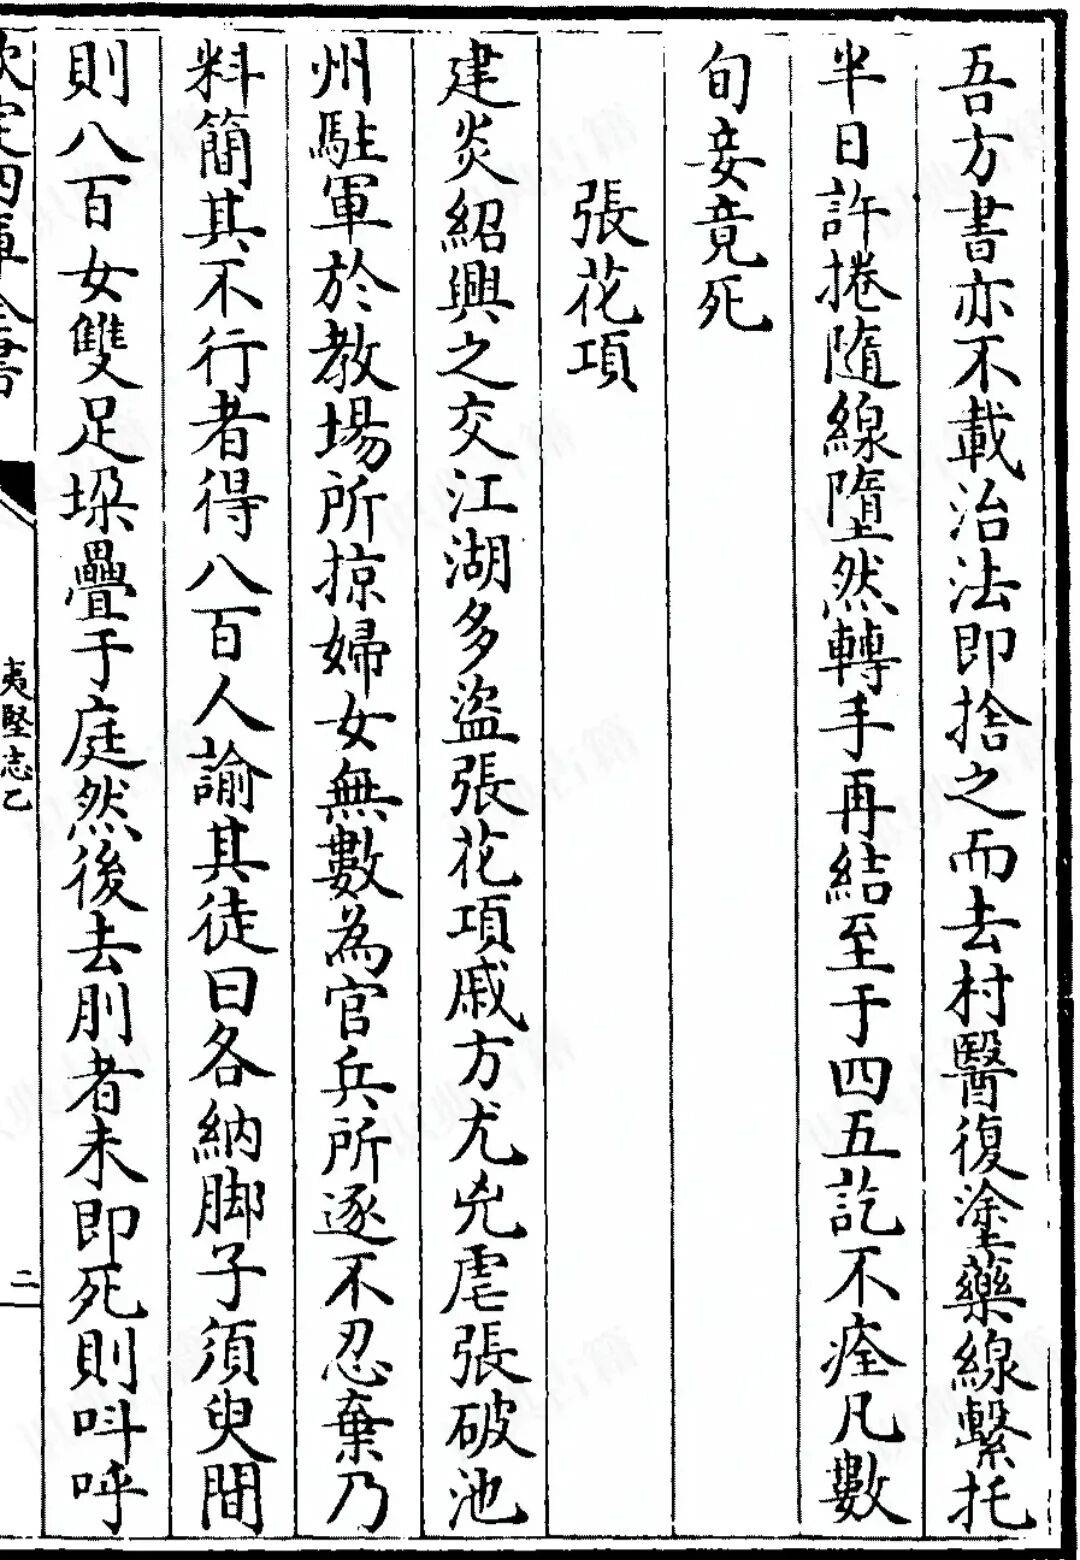 吾方書亦不載治法即捨之而去村醫復塗藥線繫托
半日許捲隨線墮然轉手再結至于四五訖不痊凡數
旬妾竟死
張花項
建炎紹興之交江湖多盜張花項戚方尤兇虐張破池
州駐軍於教場所掠婦女無數為官兵所逐不忍棄乃
料簡其不行者得八百人諭其徒曰各納脚子須臾間
則八百女雙足垜疊于庭然後去刖者未即死則呌呼
欽定四庫全書
夷堅志乙
二